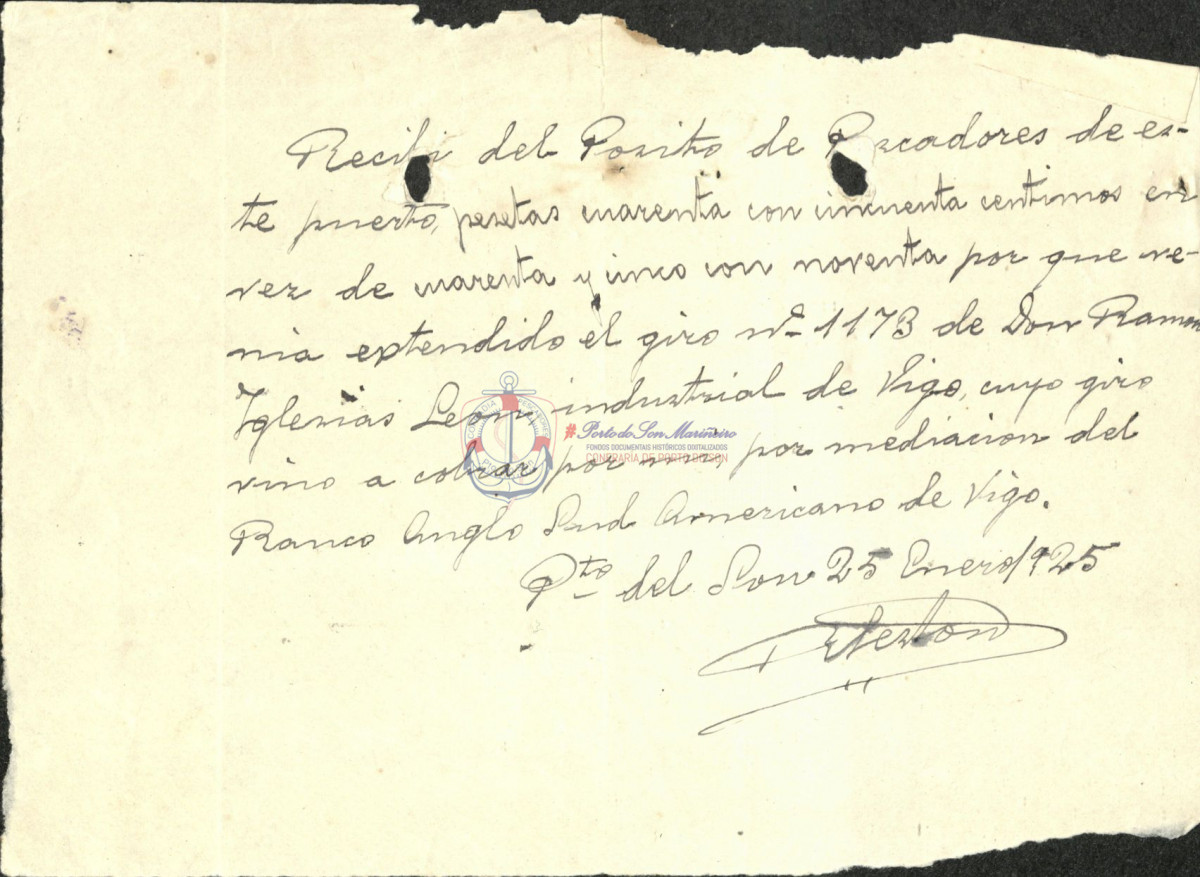 Recibi del Posito de Pescadores de es-
te puerto, pesetas cuarenta con cincuenta centimos en
vez de cuarenta y cinco con noventa por que ve-
nia extendido el giro nº 1173 de Don Ramon
Iglesias Leon, industrial de Vigo, cuyo giro
vino a cobrar por mi, por mediacion del
Banco Anglo Sud Americano de Vigo.
Pto del Son 25 Enero/925
#Porto do Son Mariñeiro
FONDOS DOCUMENTAIS HISTÓRICOS DIXITALIZADOS
CONFRARÍA DE PORTO DO SON